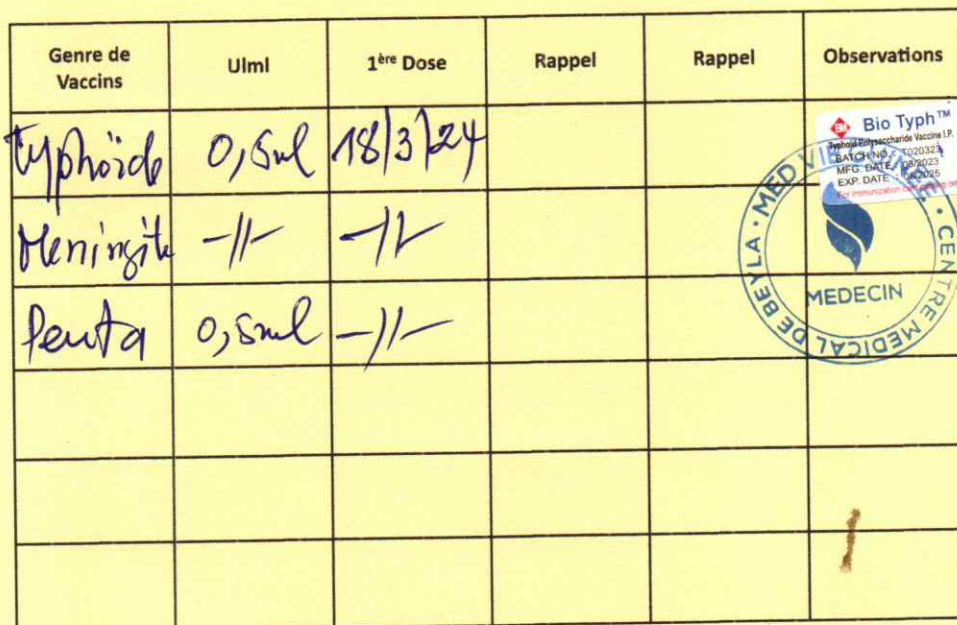 Genre de Vaccins UImI 1ère Dose Rappel Rappel Observations
Typhoïde 0,5ml 18/3/24
Bio Typh™
Typhoid Polysaccharide Vaccine I.P.
BATCH NO. : T020323
MFG. DATE : 08/2023
EXP. DATE : /2025
For immunization
Meningite -//- -//-
Penta 0,5ml -//-
MED VIE CLINIQUE • CENTRE MEDICAL DE BEYLA •
MEDECIN